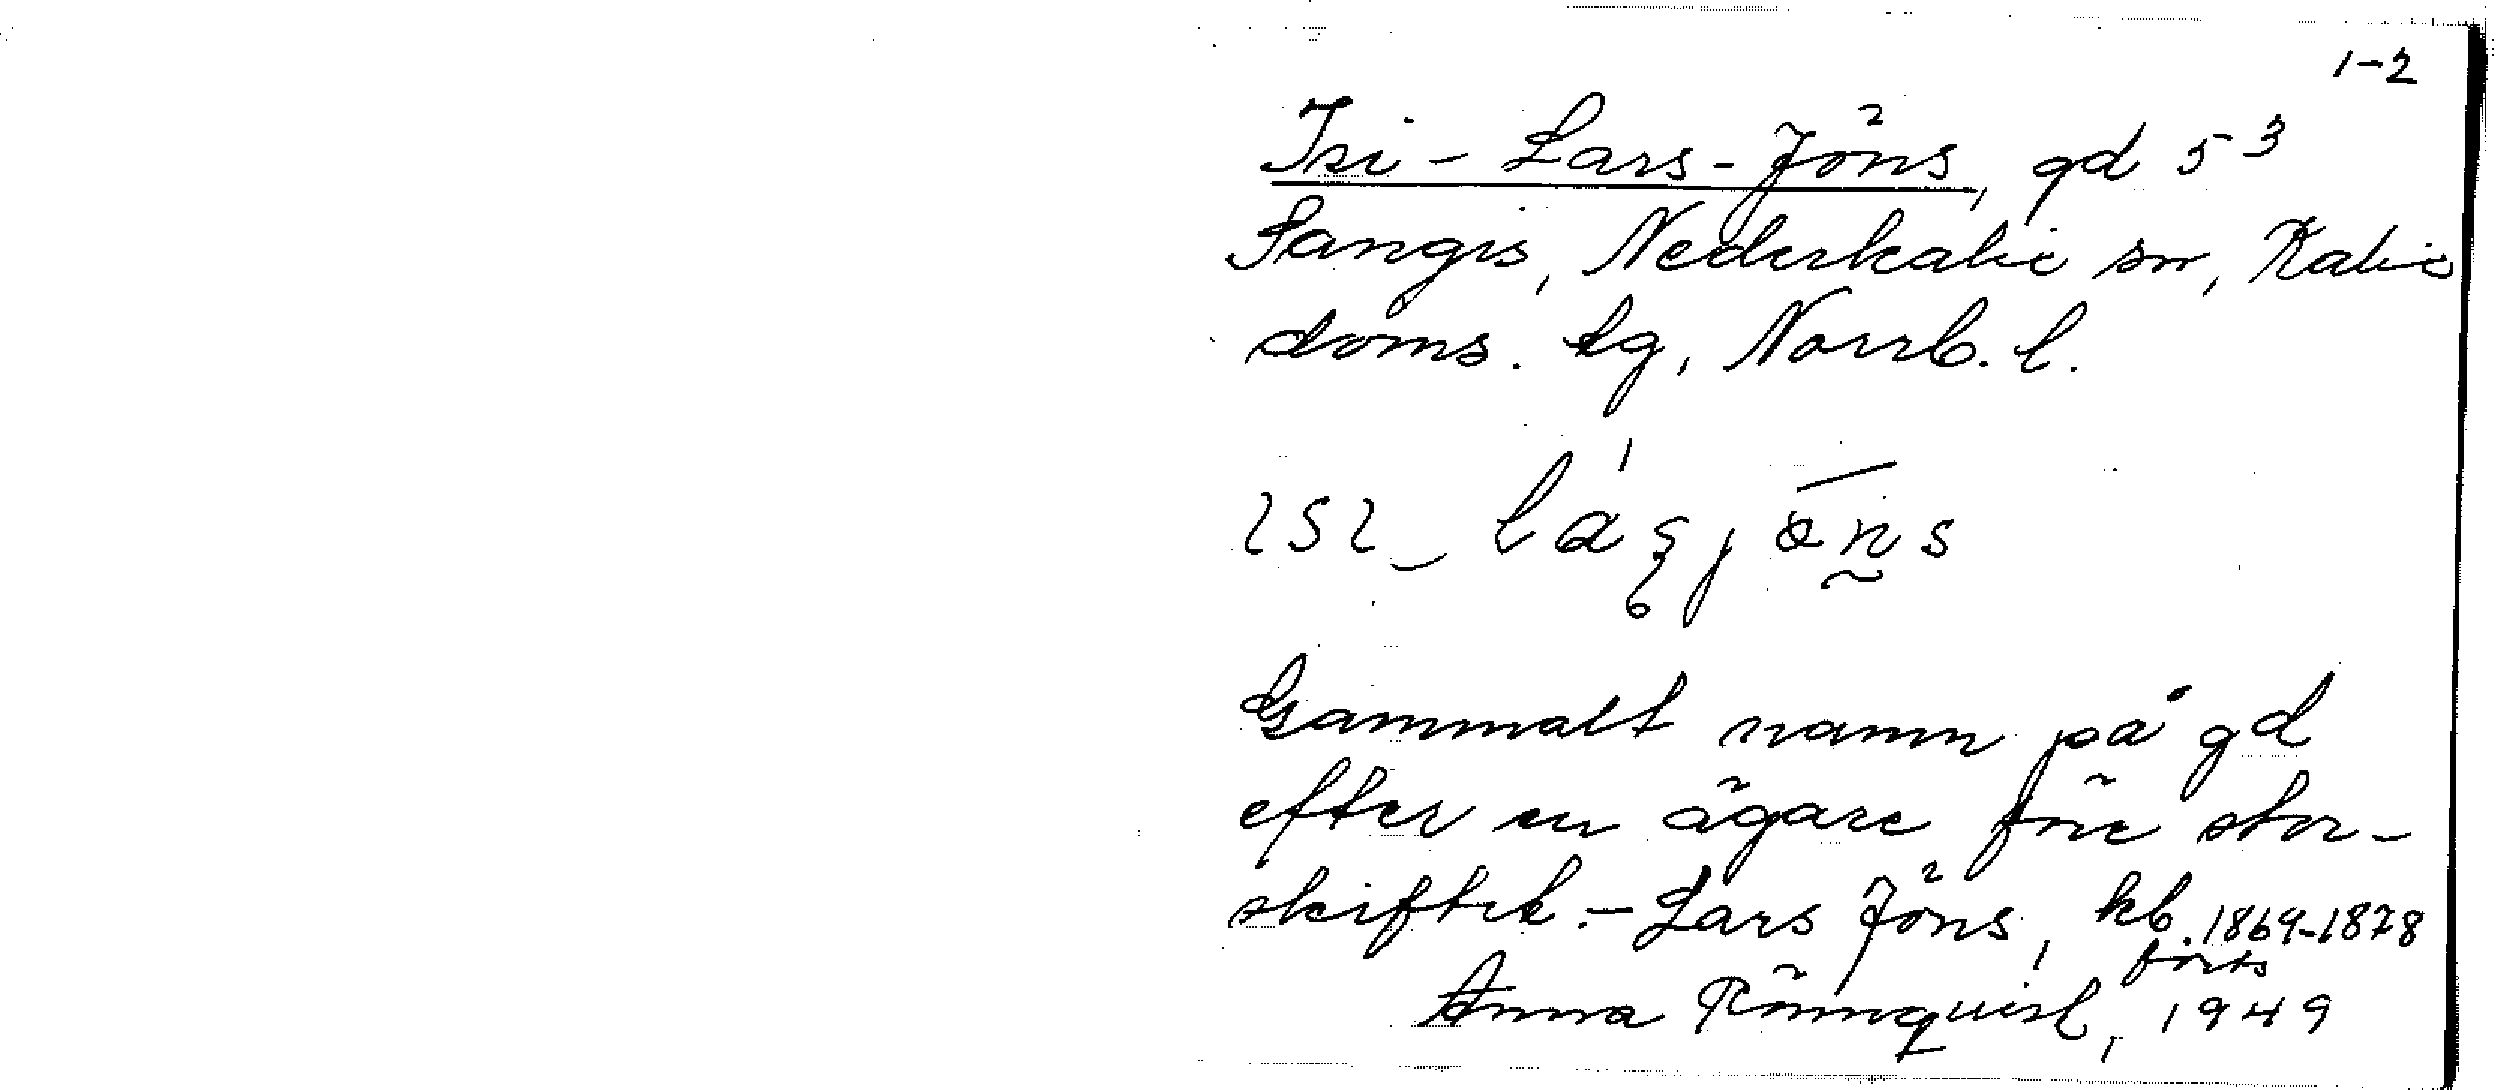 1-2
Isi-Lars-Jöns, gd 5³
Sangis, Nederkalix sn, Kalix
doms. lg, Norrb. l.
Gammalt namn på gd
efter en ägare före stor-
skiftet. - Lars Jöns, kb. 1869-1878
forts
Anna Rönnquist, 1949